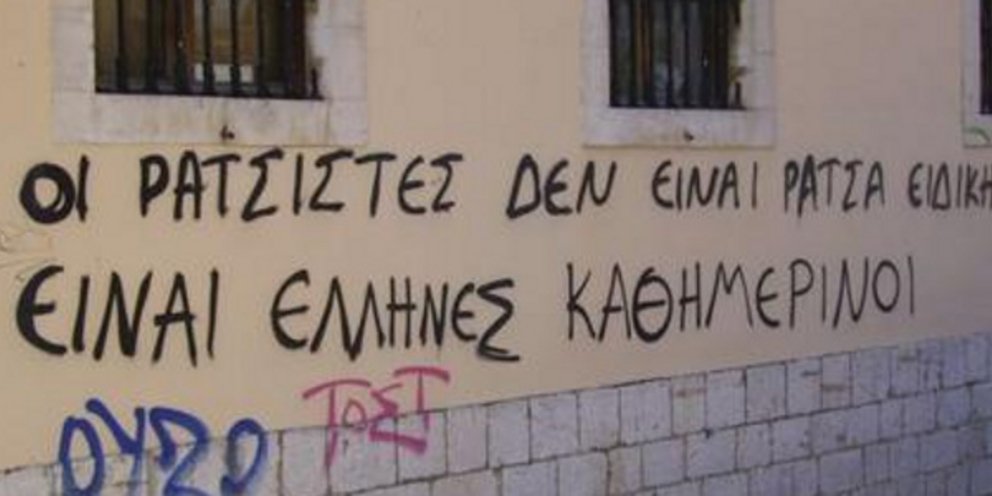 ΟΙ ΡΑΤΣΙΣΤΕΣ ΔΕΝ ΕΙΝΑΙ ΡΑΤΣΑ ΕΙΔΙΚΗ
ΕΙΝΑΙ ΕΛΛΗΝΕΣ ΚΑΘΗΜΕΡΙΝΟΙ
ΤΟΣΤ
ΟΥΖΟ